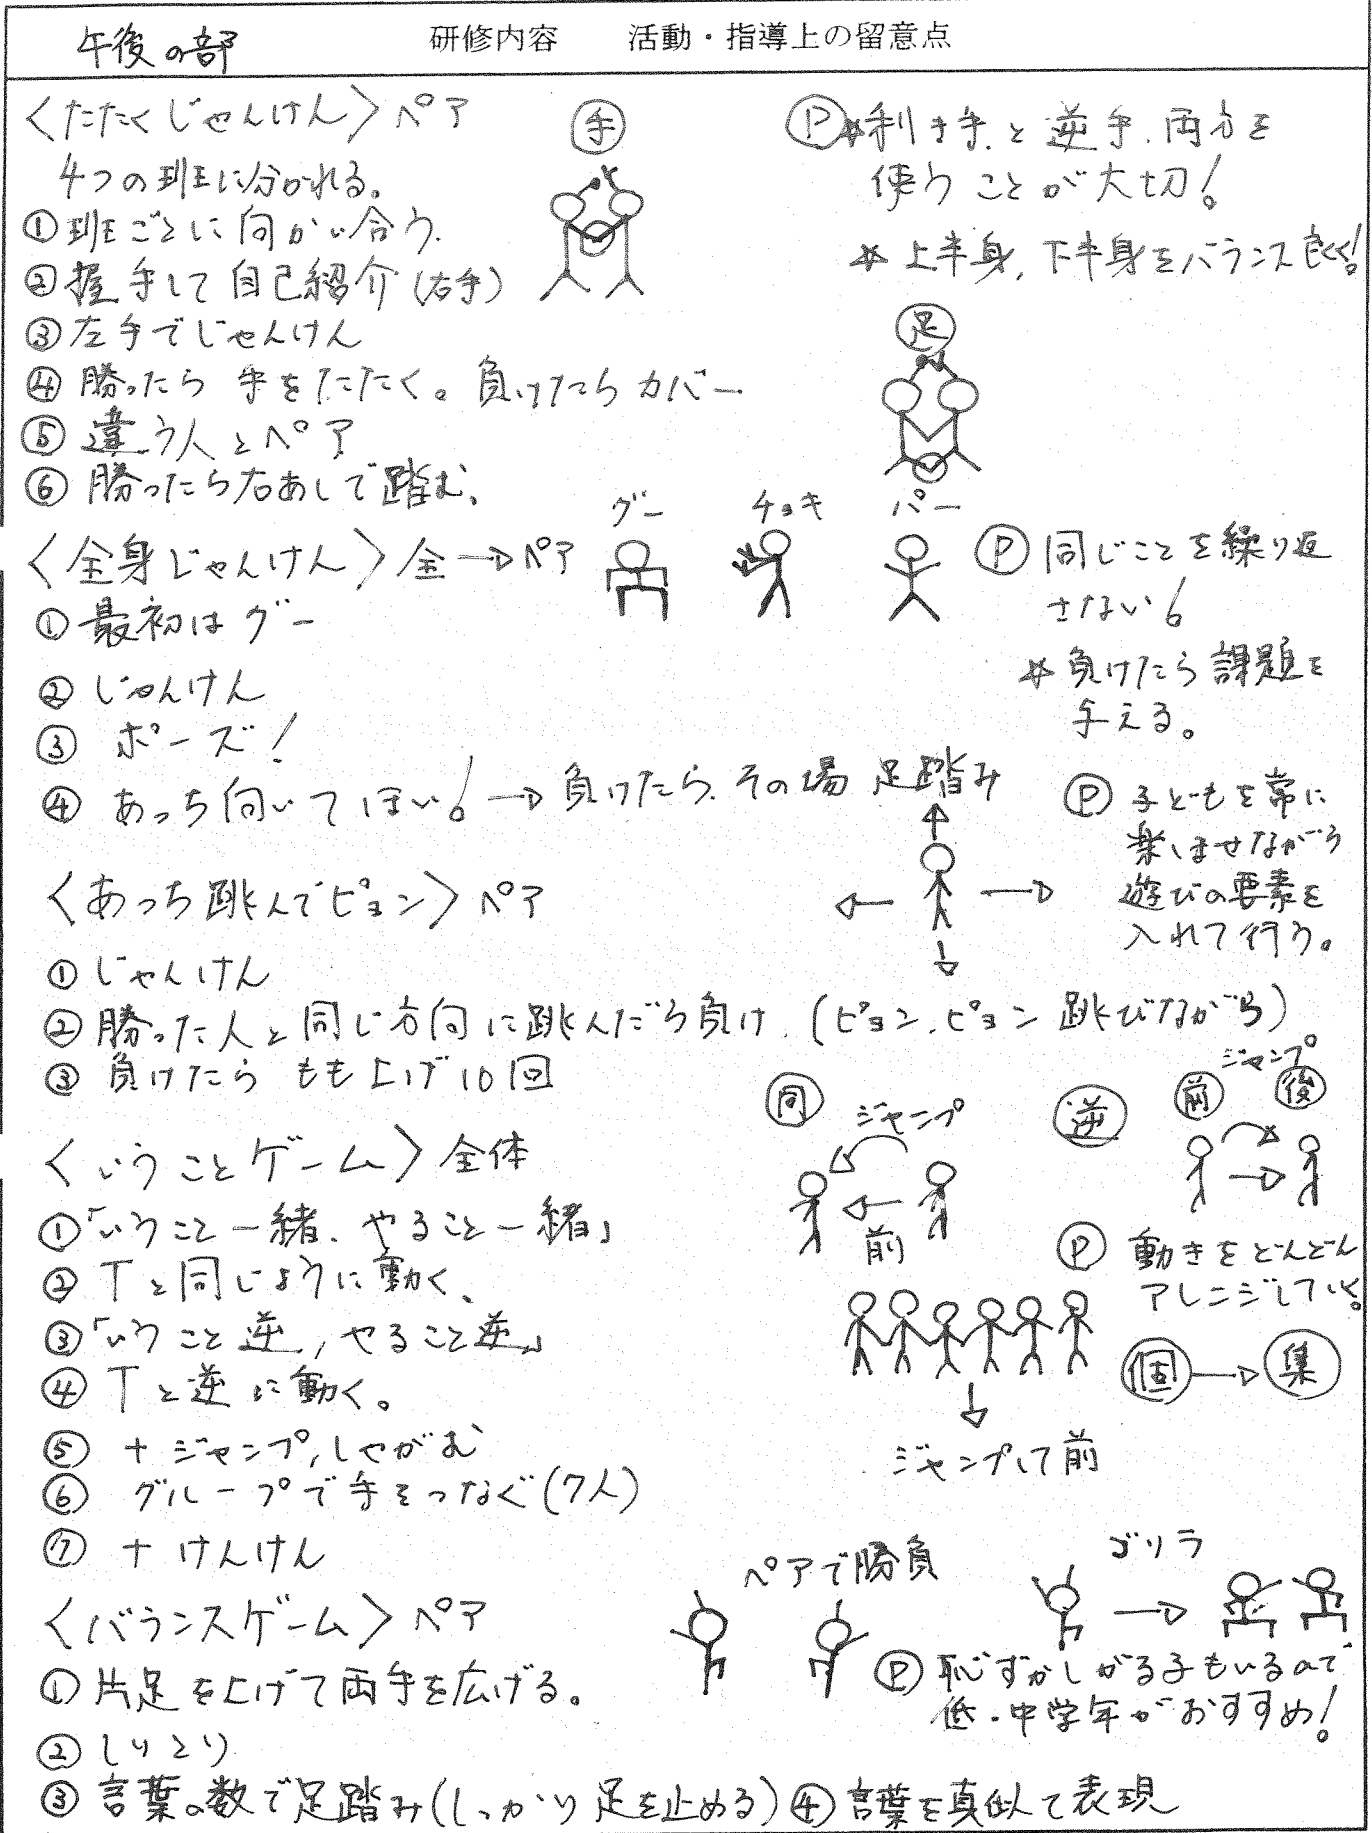 午後の部 研修内容 活動・指導上の留意点
〈たたくじゃんけん〉ペア
4つの班に分かれる。
①班ごとに向かい合う.
②握手して自己紹介(右手)
③左手でじゃんけん
④勝ったら手をたたく。負けたらカバー
⑤違う人とペア
⑥勝ったら右あしで踏む、
手
Ⓟ☆利き手と逆手、両方を
使うことが大切!
☆上半身、下半身をバランス良く!
足
〈全身じゃんけん〉全→ペア
①最初はグー
②じゃんけん
③ポーズ!
④あっち向いてほい!→負けたら、その場足踏み
グー チョキ パー
Ⓟ同じことを繰り返
さない!
☆負けたら課題を
与える。
〈あっち跳んでピョン〉ペア
①じゃんけん
②勝った人と同じ方向に跳んだら負け.(ピョン、ピョン跳びながら)
③負けたらもも上げ10回
Ⓟ子どもを常に
楽しませながら
遊びの要素を
入れて行う。
〈いうことゲーム〉全体
①「いうこと一緒、やること一緒」
②Tと同じように動く、
③「いうこと逆,やること逆」
④Tと逆に動く。
⑤+ジャンプ,しゃがむ
⑥グループで手をつなぐ(7人)
⑦+けんけん
同 ジャンプ
前
逆 前 ジャンプ 後
Ⓟ動きをどんどん
アレンジしていく。
個→集
ジャンプして前
〈バランスゲーム〉ペア
①片足を上げて両手を広げる。
②しりとり
③言葉の数で足踏み(しっかり足を止める)④言葉を真似て表現
ペアで勝負
ゴリラ
Ⓟ恥ずかしがる子もいるので
低・中学年がおすすめ!